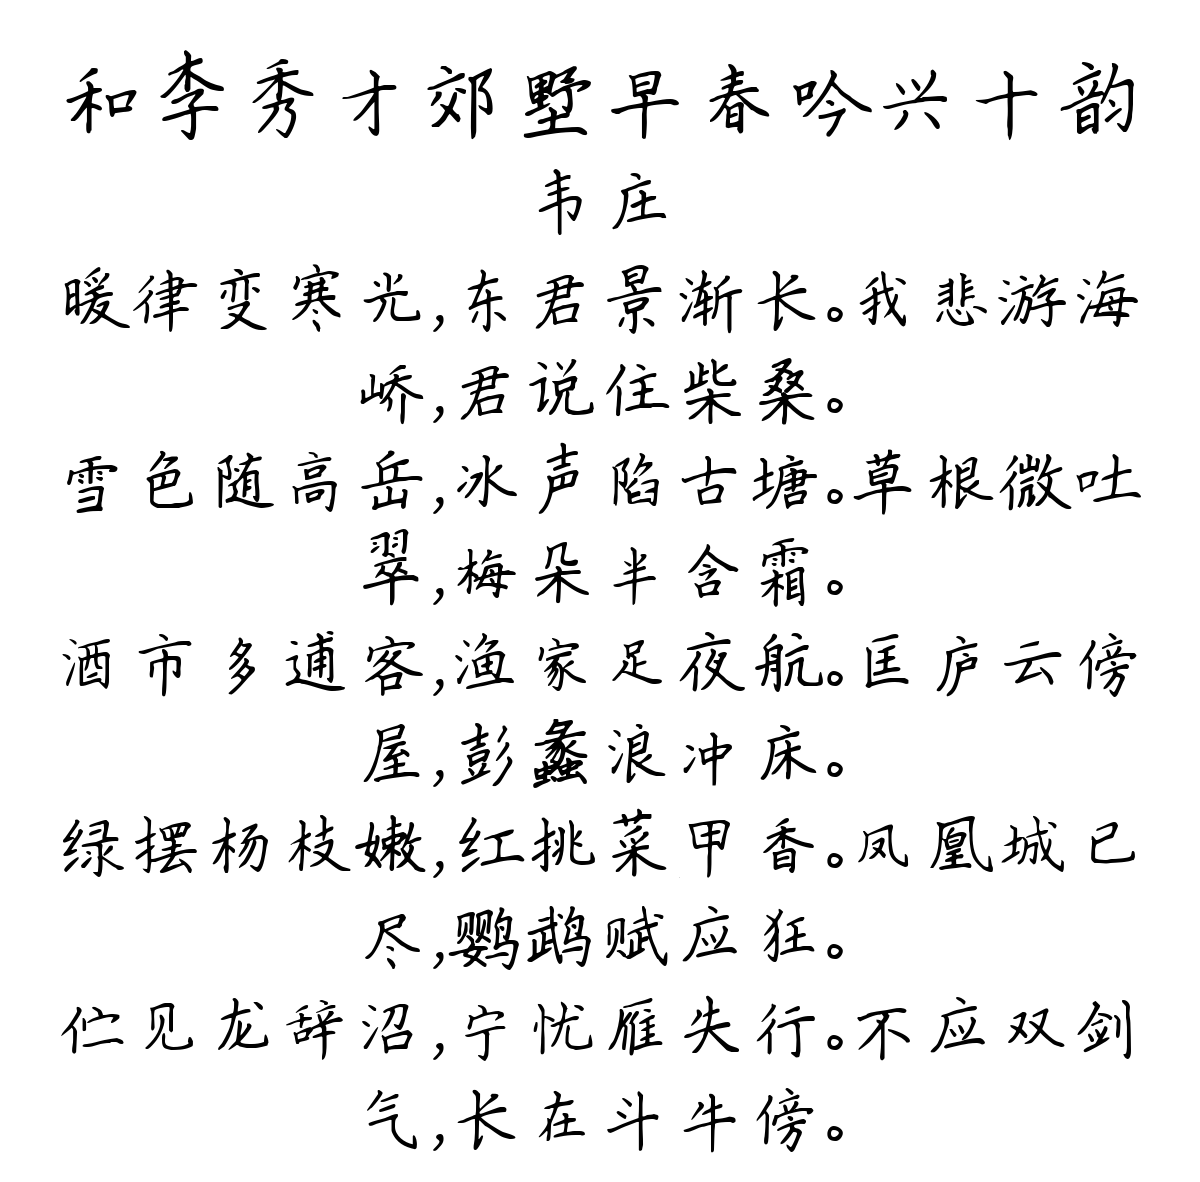 和李秀才郊墅早春吟兴十韵
韦庄
暖律变寒光,东君景渐长。我悲游海
峤,君说住柴桑。
雪色随高岳,冰声陷古塘。草根微吐
翠,梅朵半含霜。
酒市多逋客,渔家足夜航。匡庐云傍
屋,彭蠡浪冲床。
绿摆杨枝嫩,红挑菜甲香。凤凰城已
尽,鹦鹉赋应狂。
伫见龙辞沼,宁忧雁失行。不应双剑
气,长在斗牛傍。